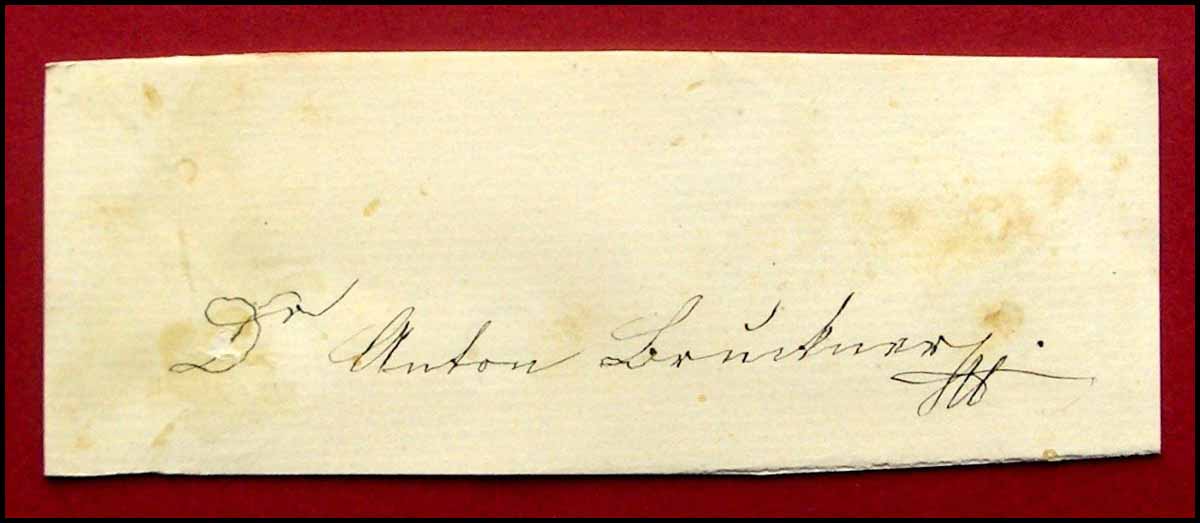 Dr Anton Bruckner.